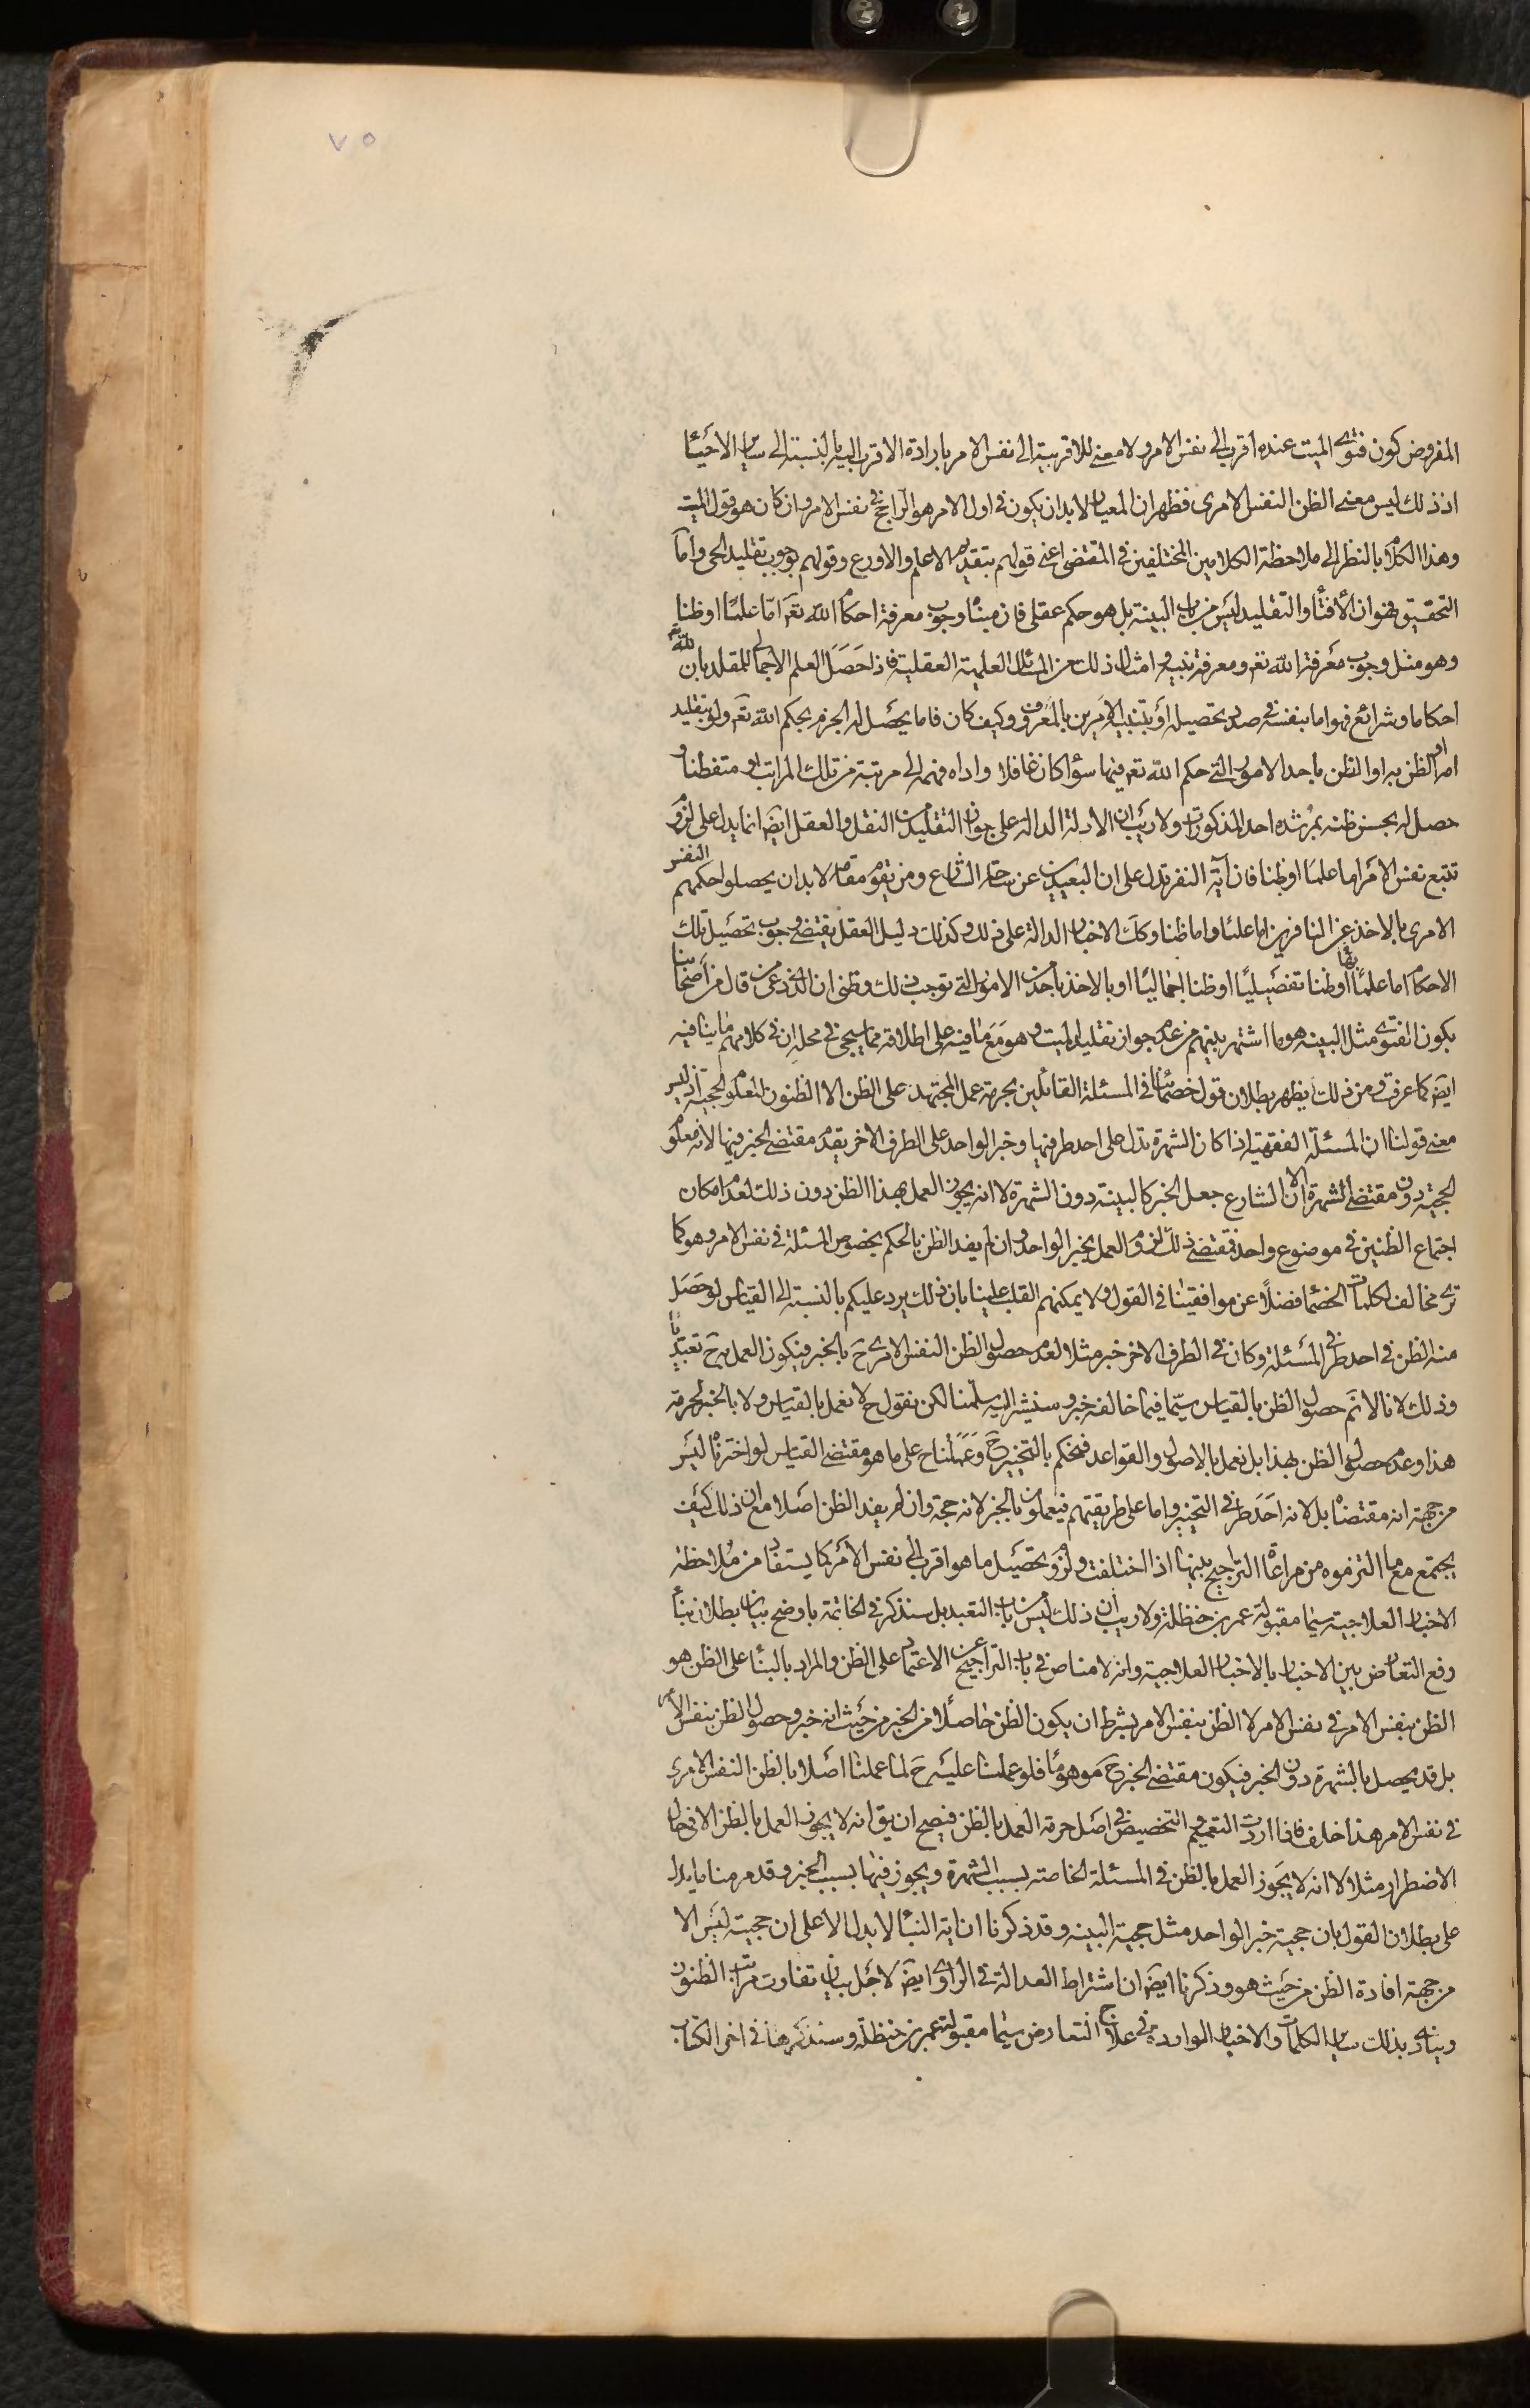 ٧٥
المفروض كون فتوى الميت عنده اقرب الى نفس الامر ولا معنى للاقربية الى نفس الامر بارادة الاقرب اليه بالنسبة الى ساير الاحياء
اذ ذلك ليس معنى الظن النفس الامرى فظهر ان المعيار لا بد ان يكون فى اول الامر هو الراجح فى نفس الامر وان كان هو قول الميت
وهذا الكلام بالنظر الى ملاحظة الكلامين المختلفين فى المقتضى اعنى قولهم بتقديم الاعلم والاورع وقولهم بوجوب تقليد الحى واما
التحقيق فهو ان الافتاء والتقليد ليس من باب البينة بل هو حكم عقلى فان مبناه وجوب معرفة احكام الله تعم اما علما او ظنا
وهو مثل وجوب معرفة الله تعم ومعرفة نبيه وامثال ذلك من المسائل العلمية العقلية فاذا حصل العلم الاجمالى للمقلد بان لله تعم
احكاما وشرايع فهو اما بنفسه فى صدد تحصيله او بتنبيه الامرين بالمعروف وكيف كان فاما يحصل له الجزم بحكم الله تعم ولو بتقليد
امه او الظن به او الظن باحد الامور التى حكم الله تعم فيها سواء كان غافلا واداه فهمه الى مرتبة من تلك المراتب او متفطنا و
حصل له بحسن ظنه بمرشده احد المذكورات ولا ريب ان الادلة الدالة على جواز التقليد من النقل والعقل ايضا انما يدل على لزوم
تتبع نفس الامر اما علما او ظنا فان آية النفر تدل على ان البعيدين عن ساحة الشارع ومن يقوم مقامه لا بد ان يحصلوا حكمهم النفس
الامرى بالاخذ عن النافرين اما علما واما ظنا وكك الاخبار الدالة على ذلك وكذلك دليل العقل يقتضى وجوب تحصيل تلك
الاحكام اما علما بها او ظنا تفصيليا او ظنا اجماليا او بالاخذ باحد من الامور التى توجب ذلك وظنى ان الذى دعى من قال من اصحابنا
بكون الفتوى مثل البينة هو ما اشتهر بينهم من عدم جواز تقليد الميت وهو مع ما فيه على اطلاقه مما سيجئ فى محله ان فى كلامهم ما ينافيه
ايضا كما عرفت ومن ذلك يظهر بطلان قول خصمائنا فى المسئلة القائلين بحرمة عمل المجتهد على الظن الا الظنون المعلوم الحجية اذ ليس
معنى قولنا ان المسئلة الفقهية اذا كان الشهرة تدل على احد طرفيها وخبر الواحد على الطرف الاخر يقدم مقتضى الخبر فيها لانه معلوم
الحجية دون مقتضى الشهرة الا ان الشارع جعل الخبر كالبينة دون الشهرة لا انه يجوز العمل بهذا الظن دون ذلك لعدم امكان
اجتماع الظنين فى موضوع واحد فمقتضى ذلك لزوم العمل بخبر الواحد وان لم يفد الظن بالحكم بخصوص المسئلة فى نفس الامر وهو كما
ترى مخالف لكلمات الخصماء فضلا عن موافقينا فى القول ولا يمكنهم القلب علينا بان ذلك يرد عليكم بالنسبة الى القياس لو حصل
منه الظن فى احد طرفى المسئلة وكان فى الطرف الاخر خبر مثلا لعدم حصول الظن النفس الامرى ح بالخبر فيكون العمل به ح تعبديا
وذلك لانا لا نم حصول الظن بالقياس سيما فيما خالفه خبر وسنشير اليه سلمنا لكن نقول ح لا نعمل بالقياس ولا بالخبر لحرمة
هذا وعدم حصول الظن بهذا بل نعمل بالاصول والقواعد فنحكم بالتخيير ح وعملنا ح على ما هو مقتضى القياس لو اخترناه ليس
من جهة انه مقتضاه بل لانه احد طرفى التخيير واما على طريقتهم فيعملون بالخبر لانه حجة وان لم يفد الظن اصلا مع ان ذلك كيف
يجتمع مع ما التزموه من مراعاة التراجيح بينها اذا اختلفت ولزوم تحصيل ما هو اقرب الى نفس الامر كما يستفاد من ملاحظة
الاخبار العلاجية سيما مقبولة عمر بن حنظلة ولا ريب ان ذلك ليس من باب التعبد بل سنذكر فى الخاتمة باوضح بيان بطلان بناء
دفع التعارض بين الاخبار بالاخبار العلاجية وانه لا مناص فى باب التراجيح عن الاعتماد على الظن والمراد بالبناء على الظن هو
الظن بنفس الامر فى نفس الامر لا الظن بنفس الامر بشرط ان يكون الظن حاصلا من الخبر من حيث انه خبر وحصول الظن بنفس الامر
بل قد يحصل بالشهرة دون الخبر فيكون مقتضى الخبر ح موهوما فلو عملنا عليه ح لما عملنا اصلا بالظن النفس الامرى
فى نفس الامر هذا خلف فاذا اردت التعميم و التخصيص فى اصل حرمة العمل بالظن فيصح ان يق انه لا يجوز العمل بالظن الا فى حال
الاضطرار مثلا لا انه لا يجوز العمل بالظن فى المسئلة الخاصة بسبب الشهرة ويجوز فيها بسبب الخبر وقد مر منا ما يدل
على بطلان القول بان حجية خبر الواحد مثل حجية البينه وقد ذكرنا ان اية النبأ لا يدل الا على ان حجيته ليس الا
من جهة افادة الظن من حيث هو وذكرنا ايضا ان اشتراط العدالة فى الراوى ايضا لاجل بيان تفاوت مراتب الظنون
وينادى بذلك ساير الكلمات والاخبار الواردة فى علاج التعارض سيما مقبولة عمر بن حنظلة وسنذكرها فى اخر الكتاب